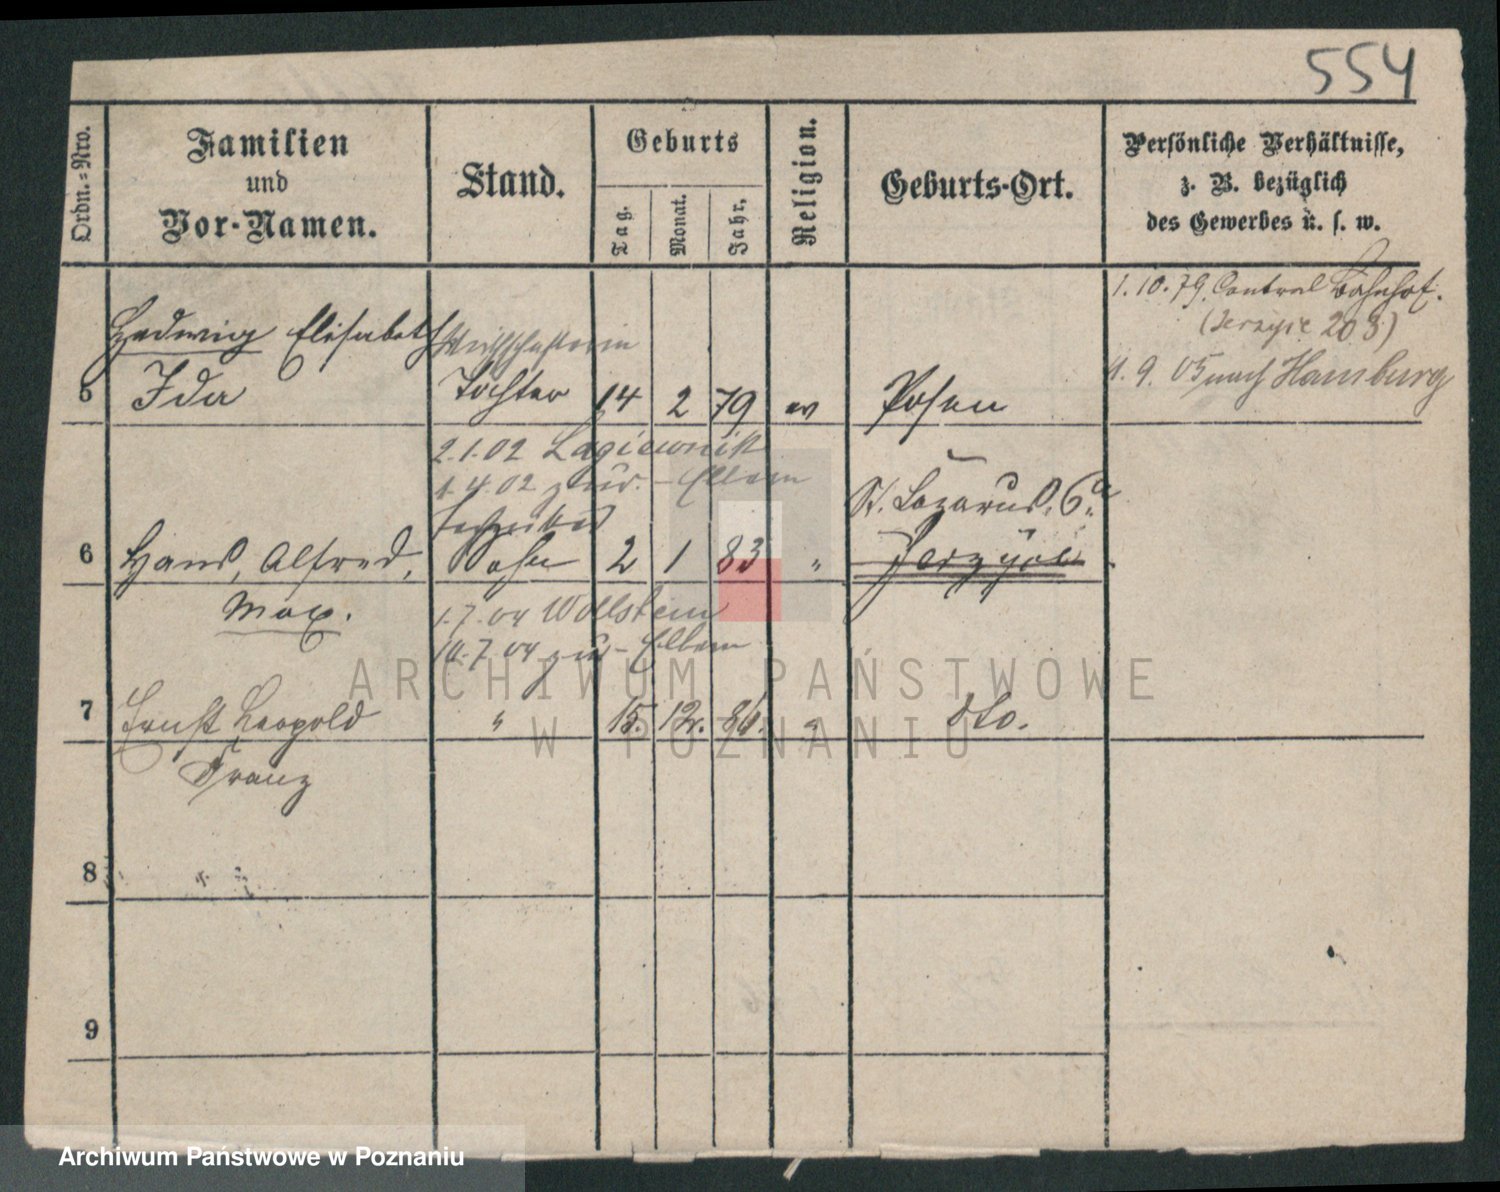 554
Ordn.=Nro.
Familien
und
Vor-Namen.
Stand.
Geburts
Tag.
Monat.
Jahr.
Religion.
Geburts-Ort.
Persönliche Verhältnisse,
z. B. bezüglich
des Gewerbes u. s. w.
1.10.79. Central Bahnhof.
(Jerzyce 203)
Hedwig Elisabeth Wirthschafterin
1.9.05 nach Hamburg
5 Ida Tochter 14 2 79 ev Posen
2.1.02 Lagiewnik
1.4.02 zur. - Eltern
St. Lazarus, 6a
6 Hans, Alfred, Sohn 2 1 83 " Jerzyce
Max.
1.7.04 Wollstein
14.7.04 zur - Eltern
7 Ernst Leopold " 15. 12. 86. " dto.
Franz
8
9
ARCHIWUM PAŃSTWOWE
W POZNANIU
Archiwum Państwowe w Poznaniu